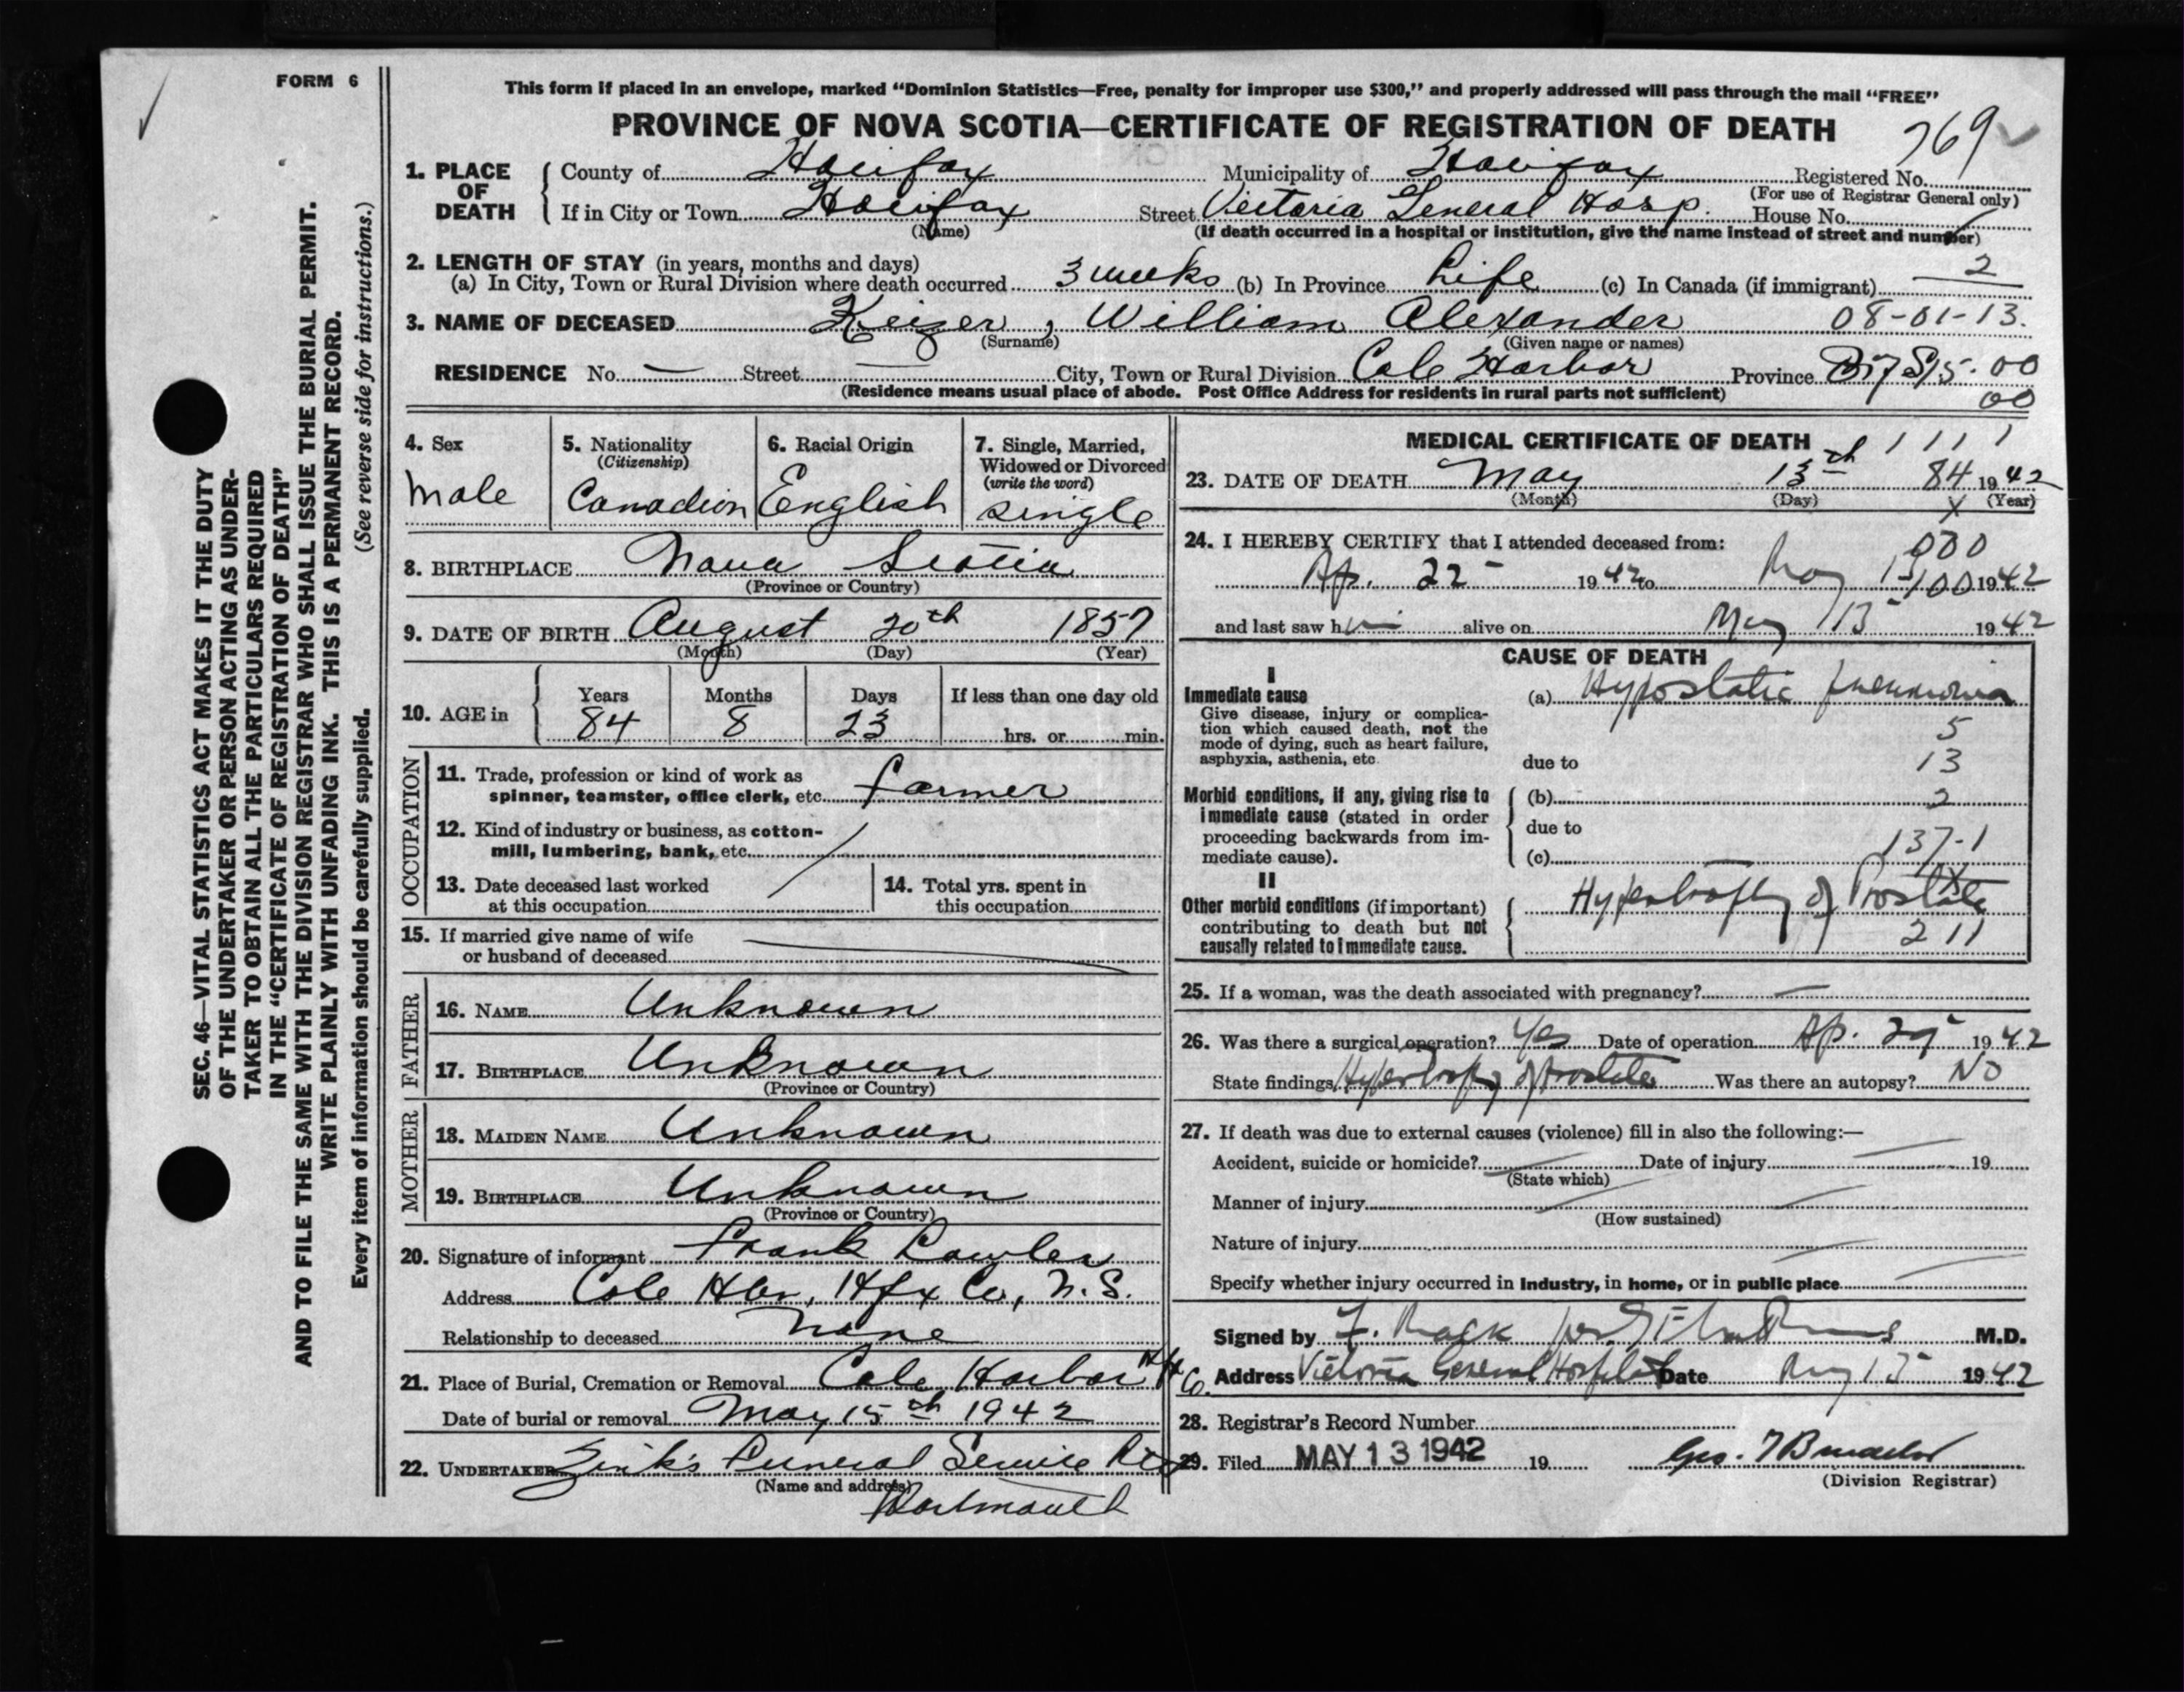 FORM 6
This form if placed in an envelope, marked “Dominion Statistics—Free, penalty for improper use $300,” and properly addressed will pass through the mail “FREE”
PROVINCE OF NOVA SCOTIA—CERTIFICATE OF REGISTRATION OF DEATH
769
1. PLACE OF DEATH
County of Halifax Municipality of Halifax Registered No.
(For use of Registrar General only)
If in City or Town Halifax Street Victoria General Hosp. House No.
(Name) (If death occurred in a hospital or institution, give the name instead of street and number)
2. LENGTH OF STAY (in years, months and days)
(a) In City, Town or Rural Division where death occurred 3 weeks (b) In Province Life (c) In Canada (if immigrant) 2
3. NAME OF DECEASED Keizer, William Alexander 08-01-13.
(Surname) (Given name or names)
RESIDENCE No. — Street — City, Town or Rural Division Cole Harbor Province 15.00
(Residence means usual place of abode. Post Office Address for residents in rural parts not sufficient) 00
4. Sex
Male
5. Nationality
(Citizenship)
Canadian
6. Racial Origin
English
7. Single, Married,
Widowed or Divorced
(write the word)
single
8. BIRTHPLACE Nova Scotia
(Province or Country)
9. DATE OF BIRTH August 20th 1857
(Month) (Day) (Year)
10. AGE in Years Months Days If less than one day old
84 8 23 hrs. or min.
OCCUPATION
11. Trade, profession or kind of work as
spinner, teamster, office clerk, etc. farmer
12. Kind of industry or business, as cotton-
mill, lumbering, bank, etc.
13. Date deceased last worked
at this occupation
14. Total yrs. spent in
this occupation
15. If married give name of wife
or husband of deceased
FATHER
16. NAME Unknown
17. BIRTHPLACE Unknown
(Province or Country)
MOTHER
18. MAIDEN NAME Unknown
19. BIRTHPLACE Unknown
(Province or Country)
20. Signature of informant Frank Lawler
Address Cole Hbr, Hfx Co, N.S.
Relationship to deceased None
21. Place of Burial, Cremation or Removal Cole Harbor Hfx Co.
Date of burial or removal May 15th 1942
22. UNDERTAKER Zink's Funeral Service
(Name and address)
Dartmouth
MEDICAL CERTIFICATE OF DEATH 1111
23. DATE OF DEATH May 13th 84 1942
(Month) (Day) X (Year)
24. I HEREBY CERTIFY that I attended deceased from: 000
Ap. 22 1942 to May 13 100 1942
and last saw him alive on May 13 1942
CAUSE OF DEATH
I
Immediate cause
Give disease, injury or complica-
tion which caused death, not the
mode of dying, such as heart failure,
asphyxia, asthenia, etc.
(a) Hypostatic pneumonia
5
due to 13
Morbid conditions, if any, giving rise to
immediate cause (stated in order
proceeding backwards from im-
mediate cause).
(b) 2
due to
137-1
(c)
II
Other morbid conditions (if important)
contributing to death but not
causally related to immediate cause.
Hypertrophy of Prostate
211
25. If a woman, was the death associated with pregnancy? —
26. Was there a surgical operation? Yes Date of operation Ap. 29 1942
State findings Hypertrophy of Prostate Was there an autopsy? NO
27. If death was due to external causes (violence) fill in also the following:—
Accident, suicide or homicide? Date of injury 19
(State which)
Manner of injury
(How sustained)
Nature of injury
Specify whether injury occurred in Industry, in home, or in public place
Signed by F. Mack M.D.
Address Victoria General Hospital Date May 13 1942
28. Registrar's Record Number
29. Filed MAY 13 1942 19 Geo.
(Division Registrar)
SEC. 46—VITAL STATISTICS ACT MAKES IT THE DUTY
OF THE UNDERTAKER OR PERSON ACTING AS UNDER-
TAKER TO OBTAIN ALL THE PARTICULARS REQUIRED
IN THE “CERTIFICATE OF REGISTRATION OF DEATH”
AND TO FILE THE SAME WITH THE DIVISION REGISTRAR WHO SHALL ISSUE THE BURIAL PERMIT.
WRITE PLAINLY WITH UNFADING INK. THIS IS A PERMANENT RECORD.
Every item of information should be carefully supplied. (See reverse side for instructions.)